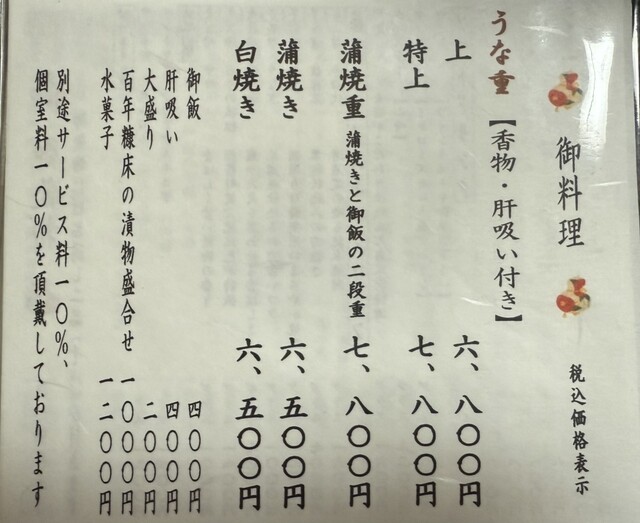 御料理
税込価格表示
うな重【香物・肝吸い付き】
上 六、八〇〇円
特上 七、八〇〇円
蒲焼重 蒲焼きと御飯の二段重 七、八〇〇円
蒲焼き 六、五〇〇円
白焼き 六、五〇〇円
御飯 四〇〇円
肝吸い 四〇〇円
大盛り 二〇〇円
百年糠床の漬物盛合せ 一〇〇〇円
水菓子 一二〇〇円
別途サービス料一〇%、
個室料一〇%を頂戴しております